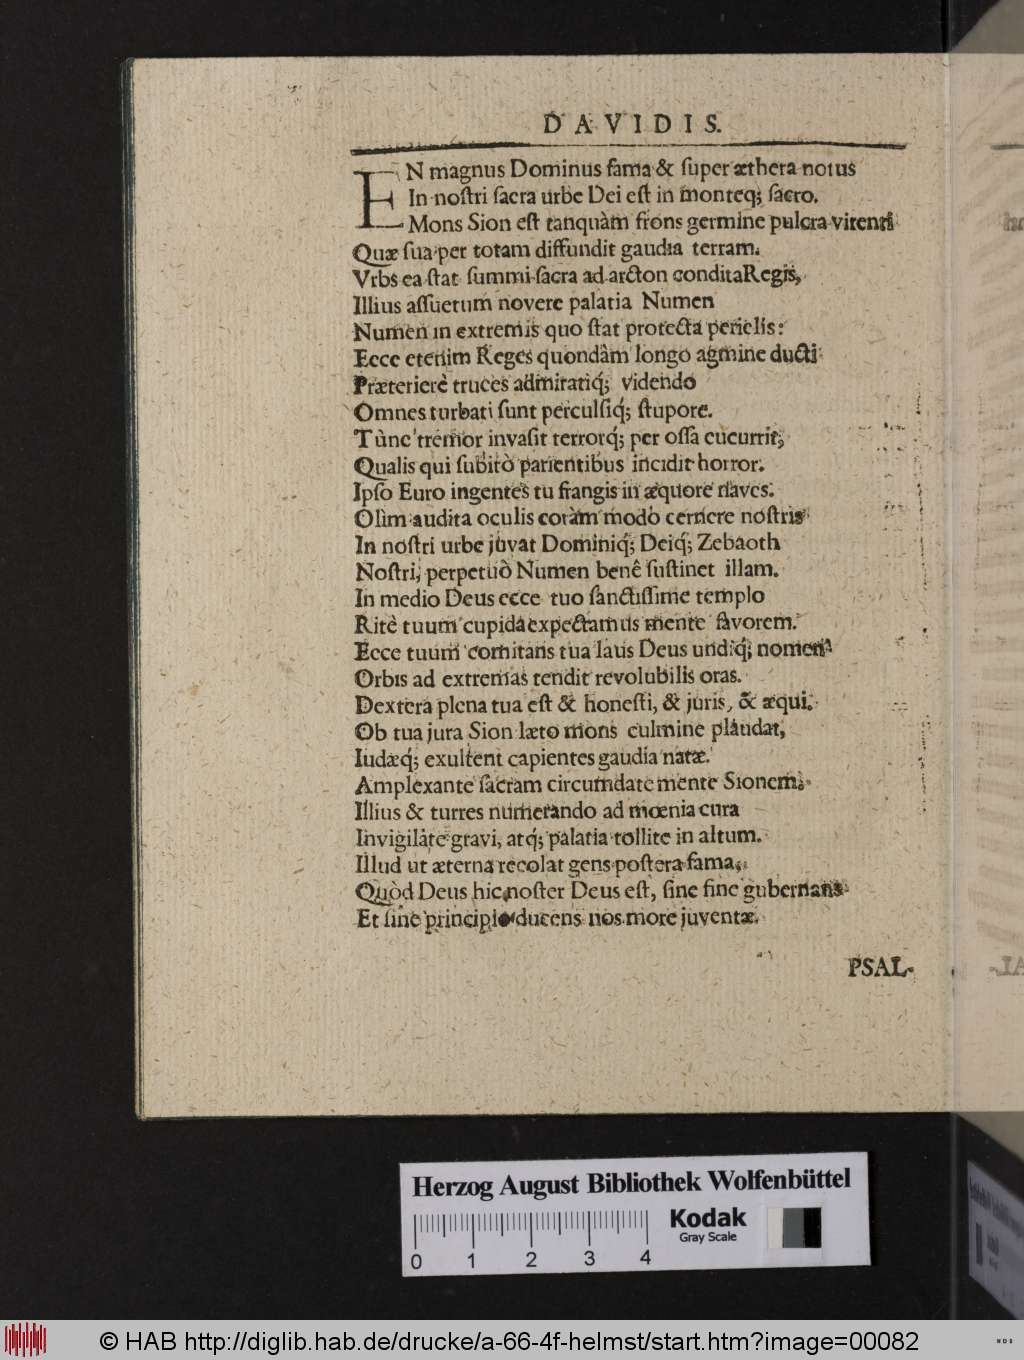 DAVIDIS.
EN magnus Dominus fama & ſuper æthera notus
In noſtri ſacra urbe Dei eſt in monteq́; ſacro.
Mons Sion eſt tanquàm frons germine pulcra virenti
Quæ ſua per totam diffundit gaudia terram.
Vrbs ea ſtat ſummi ſacra ad arcton condita Regis,
Illius aſſuetum novere palatia Numen
Numen in extremis quo ſtat protecta periclis:
Ecce etenim Reges quondâm longo agmine ducti
Præteriere truces admiratiq́; videndo
Omnes turbati ſunt perculſiq́; ſtupore.
Tùnc tremor invaſit terrorq́; per oſſa cucurrit,
Qualis qui ſubitò parientibus incidit horror.
Ipſo Euro ingentes tu frangis in æquore naves.
Olìm audita oculis coràm modò cernere noſtris
In noſtri urbe juvat Dominiq́; Deiq́; Zebaoth
Noſtri, perpetuò Numen benê ſuſtinet illam.
In medio Deus ecce tuo ſanctiſſime templo
Ritè tuum cupidâ expectamus mente favorem.
Ecce tuum comitans tua laus Deus undiq́; nomen
Orbis ad extremas tendit revolubilis oras.
Dextera plena tua eſt & honeſti, & juris, & æqui.
Ob tua jura Sion læto mons culmine plaudat,
Iudæq́; exultent capientes gaudia natæ.
Amplexante ſacram circumdate mente Sionem,
Illius & turres numerando ad mœnia cura
Invigilate gravi, atq́; palatia tollite in altum.
Illud ut æterna recolat gens poſtera fama,
Quòd Deus hic noſter Deus eſt, ſine fine gubernans
Et ſine principio ducens nos more juventæ.
PSAL-
Herzog August Bibliothek Wolfenbüttel
Kodak
Gray Scale
0 1 2 3 4
© HAB http://diglib.hab.de/drucke/a-66-4f-helmst/start.htm?image=00082